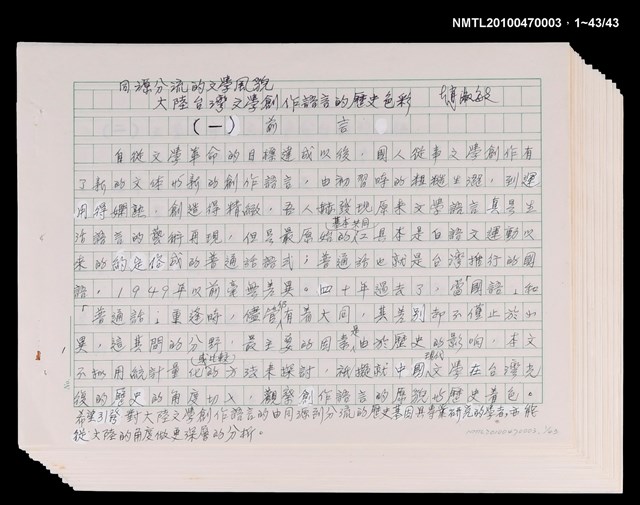 NMTL20100470003，1~43/43
同源分流的文學風貌
大陸台灣文學創作語言的歷史色彩 趙淑敏
(一) 前言
自從文學革命的目標達成以後，國人從事文學創作有
了新的文体的新的創作語言，由初習時的粗糙生澀，到運
用得嫻熟，創造得精緻，吾人發現原來文學語言真是生
活語言的藝術再現，但是最原始的（基本共同）工具本是白話文運動以
來的約定俗成的普通話語式；普通話也就是台灣推行的國
語，1949年以前毫無差異。四十年過去了，當「國語」和
「普通話」重逢時，儘管仍有着大同，其差別卻不僅止於小
異，這其間的分野，最主要的因素是由於歷史的影響，本文
不擬用統計量化（或比較）的方法來探討，祇擬就中國現代文學在台灣先
後的歷史的角度切入，觀察創作語言的風貌的歷史着色。
希望引發對大陸文學創作語言的由同源到分流的歷史基因具專業研究的學者，亦能
從大陸的角度做更深層的分析。
NMTL20100470003, 1/43